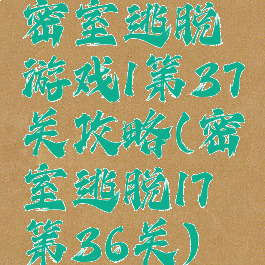 密室逃脱
游戏1第37
关攻略(密
室逃脱17
第36关)